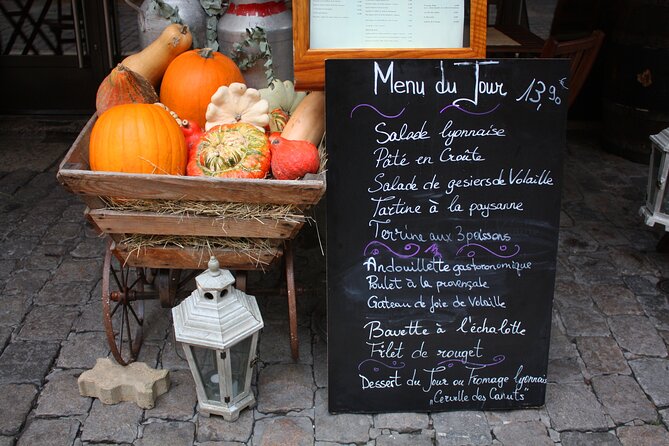 Menu du Jour 13,90 €
Salade lyonnaise
Pâté en Croûte
Salade de gesiers de Volaille
Tartine à la paysanne
Terrine aux 3 poissons
Andouillette gastronomique
Poulet à la provençale
Gateau de foie de Volaille
Bavette à l'échalotte
Filet de rouget
Dessert du Jour ou Fromage lyonnais
"Cervelle des Canuts